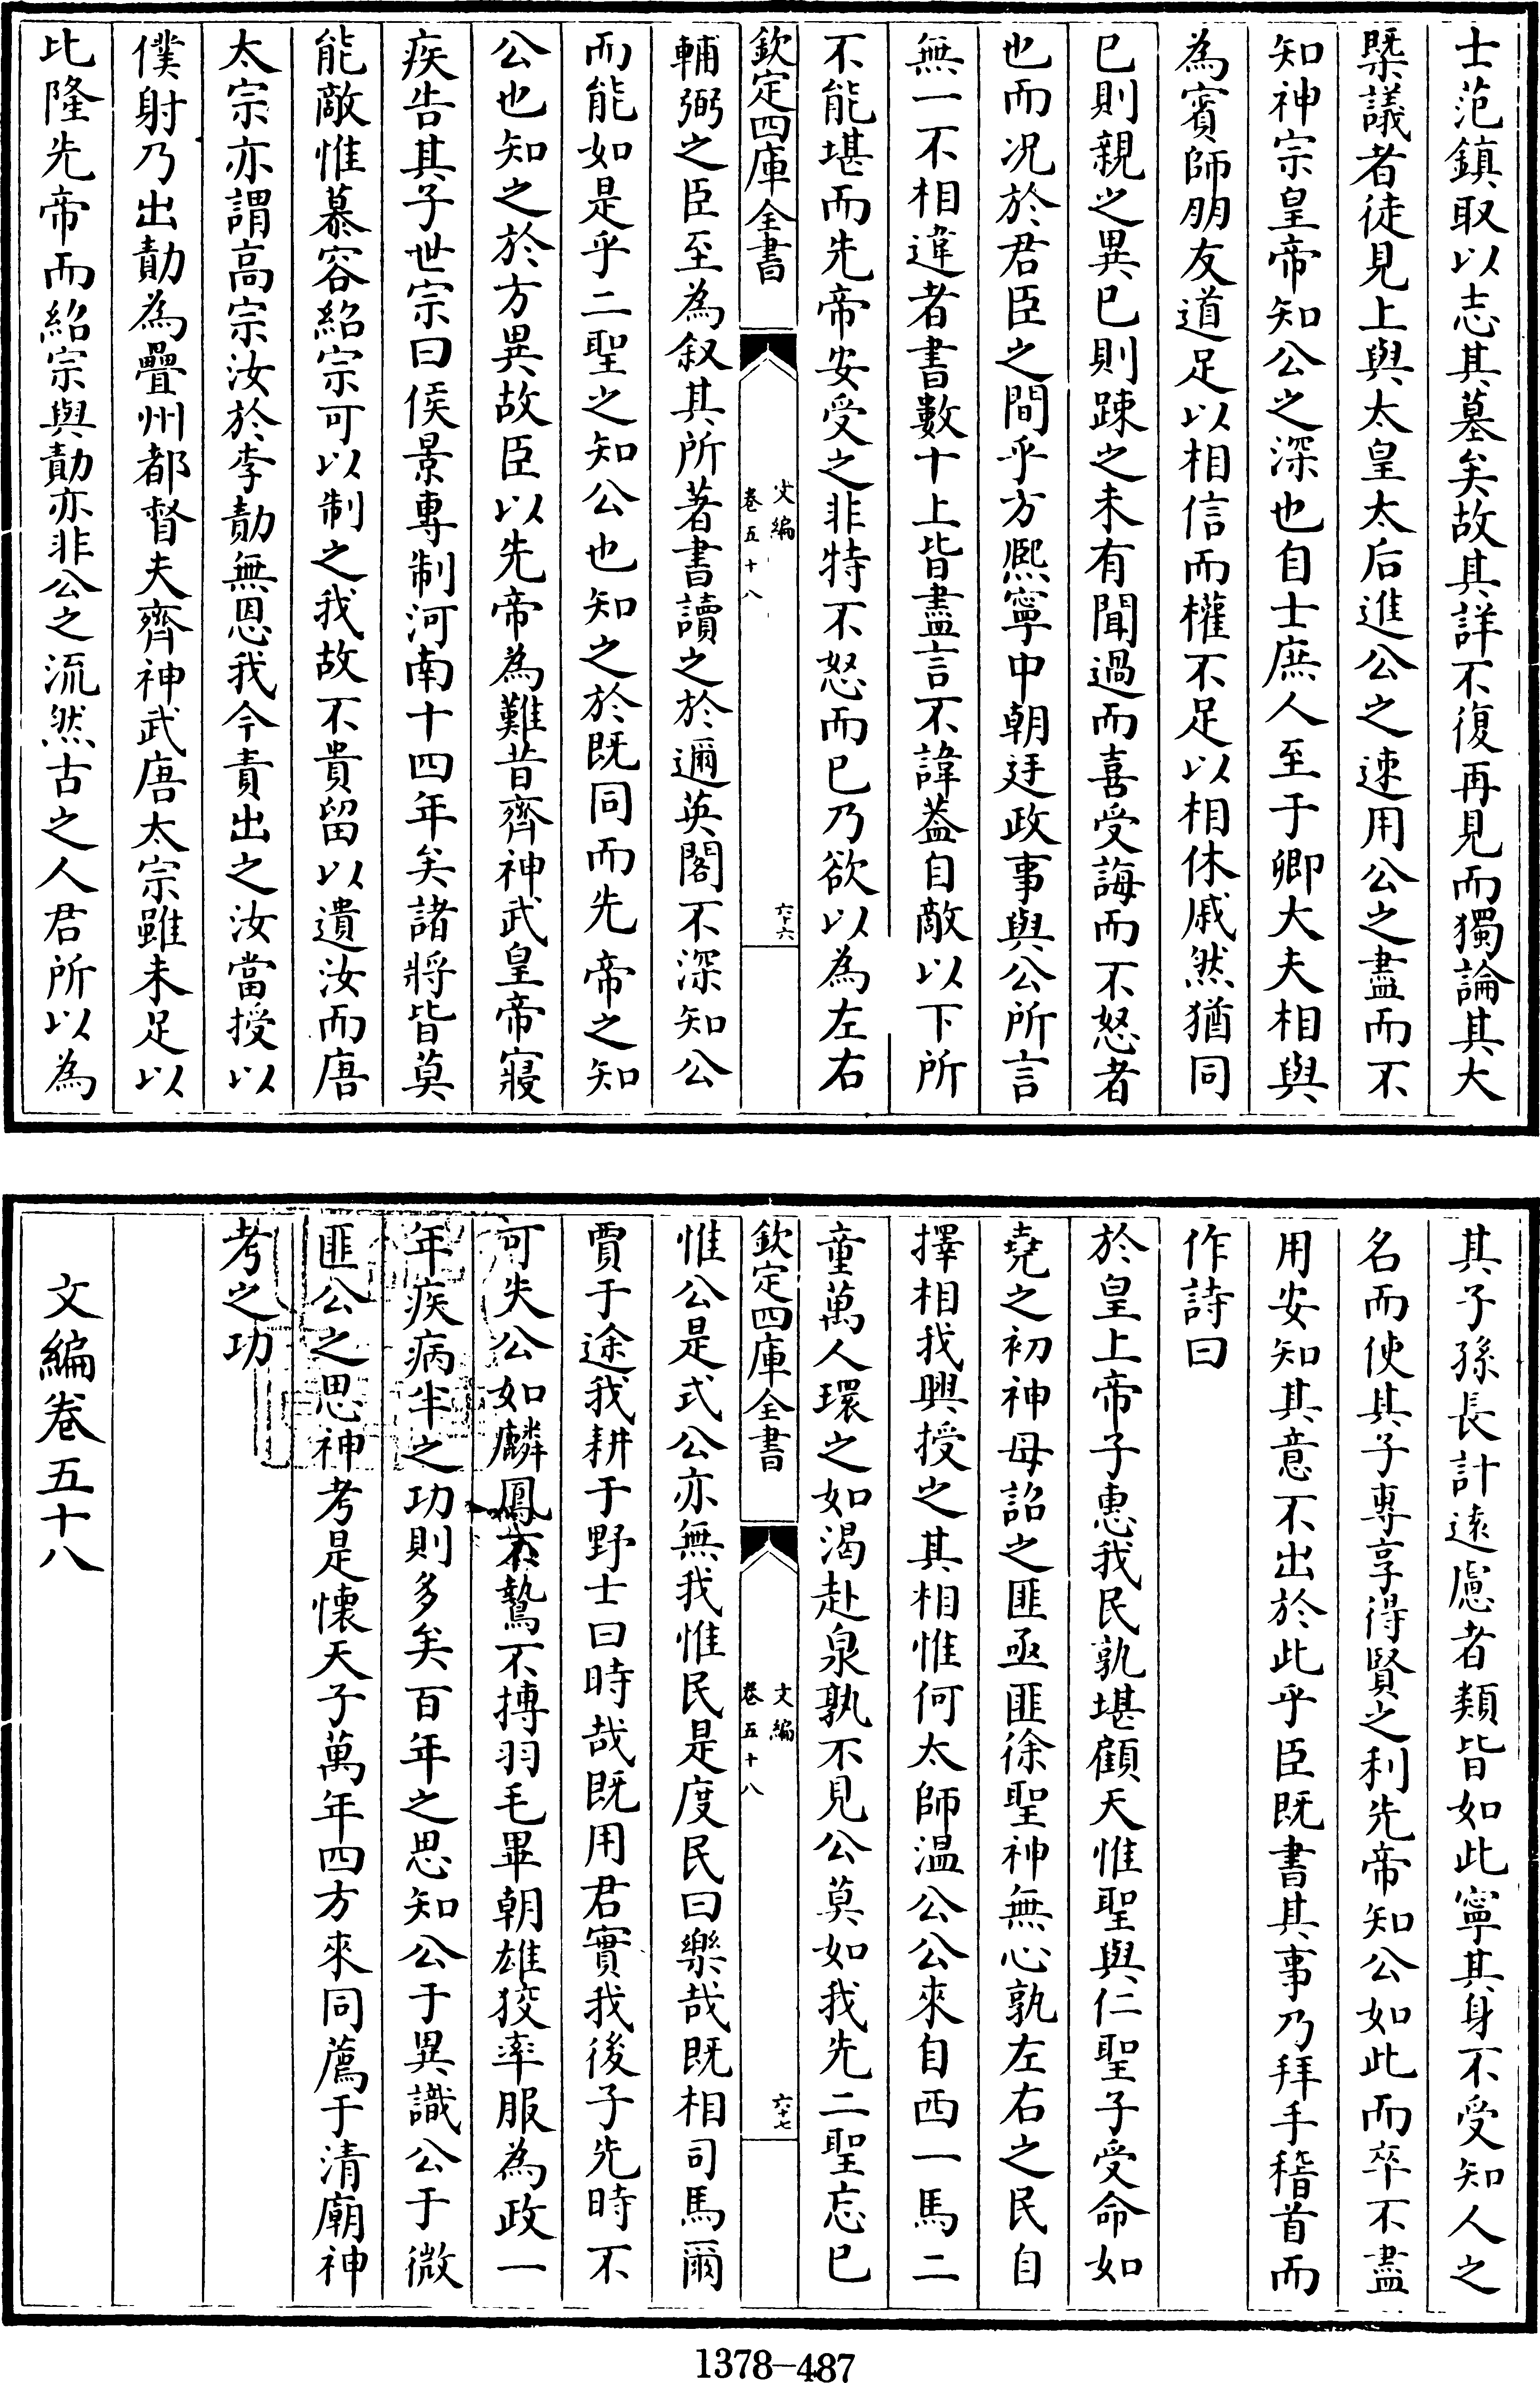 士范鎮取以志其墓矣故其詳不復再見而獨論其大
槩議者徒見上與太皇太后進公之速用公之盡而不
知神宗皇帝知公之深也自士庶人至于卿大夫相與
為賓師朋友道足以相信而權不足以相休戚然猶同
已則親之異已則踈之未有聞過而喜受誨而不怒者
也而况於君臣之間乎方熈寧中朝廷政事與公所言
無一不相違者書數十上皆盡言不諱葢自敵以下所
不能堪而先帝安受之非特不怒而已乃欲以為左右
欽定四庫全書
文編
卷五十八
六十六
輔弼之臣至為叙其所著書讀之於邇英閣不深知公
而能如是乎二聖之知公也知之於既同而先帝之知
公也知之於方異故臣以先帝為難昔齊神武皇帝寢
疾告其子世宗曰侯景專制河南十四年矣諸將皆莫
能敵惟慕容紹宗可以制之我故不貴留以遺汝而唐
太宗亦謂高宗汝於李勣無恩我今責出之汝當授以
僕射乃出勣為疊州都督夫齊神武唐太宗雖未足以
比隆先帝而紹宗與勣亦非公之流然古之人君所以為
其子孫長計逺慮者類皆如此寧其身不受知人之
名而使其子專享得賢之利先帝知公如此而卒不盡
用安知其意不出於此乎臣既書其事乃拜手稽首而
作詩曰
於皇上帝子惠我民孰堪顧天惟聖與仁聖子受命如
堯之初神母詔之匪亟匪徐聖神無心孰左右之民自
擇相我興授之其相惟何太師温公公來自西一馬二
童萬人環之如渴赴泉孰不見公莫如我先二聖忘已
欽定四庫全書
文編
卷五十八
六十七
惟公是式公亦無我惟民是度民曰樂哉既相司馬爾
賈于途我耕于野士曰時哉既用君實我後子先時不
可失公如麟鳳不鷙不搏羽毛畢朝雄狡率服為政一
年疾病半之功則多矣百年之思知公于異識公于微
匪公之思神考是懷天子萬年四方來同薦于清廟神
考之功
文編卷五十八
1378-487